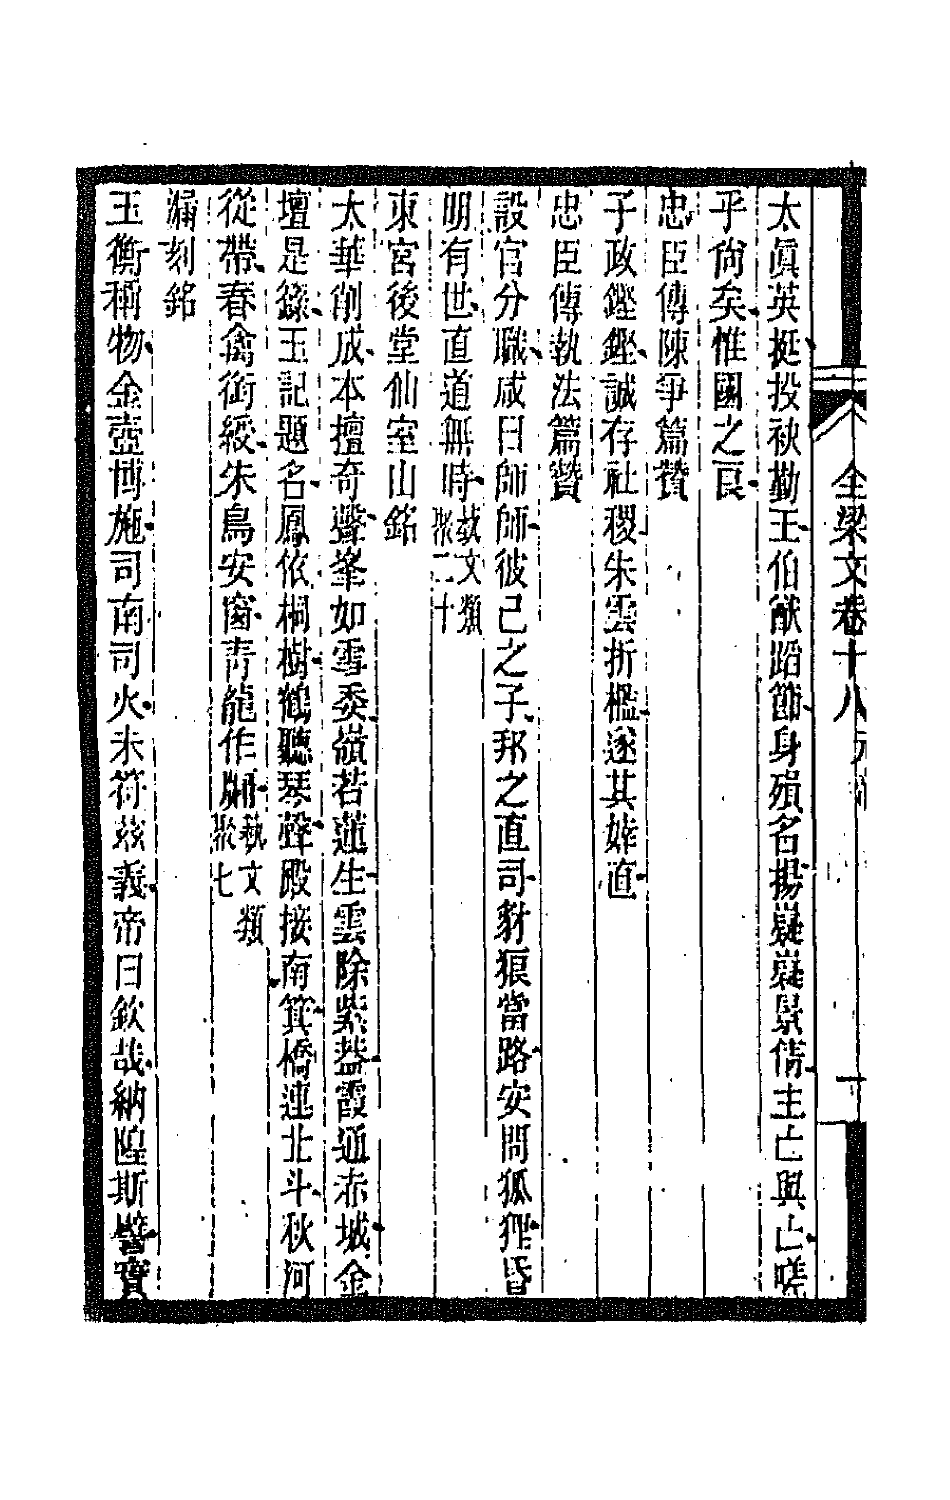 全梁文卷十八 元帝 一
太眞英挺投袂勤王伯猷蹈節身殞名揚嶷嶷景倩主亡與亡嗟
乎尙矣惟國之良
忠臣傳陳爭篇贊
子政鏗鏗誠存社稷朱雲折檻遂其婞直
忠臣傳執法篇贊
設官分職咸曰師師彼己之子邦之直司豺狼當路安問狐狸昏
明有世直道無時藝文類聚二十
東宮後堂仙室山銘
太華削成本擅奇聲峯如雪委嶺若蓮生雲除紫葢霞通赤城金
壇是籙玉記題名鳳依桐樹鶴聽琴聲殿接南箕橋連北斗秋河
從帶春禽銜綬朱鳥安窗靑龍作牖藝文類聚七
漏刻銘
玉衡稱物金壺博施司南司火未符茲義帝曰欽哉納隍斯譬寶